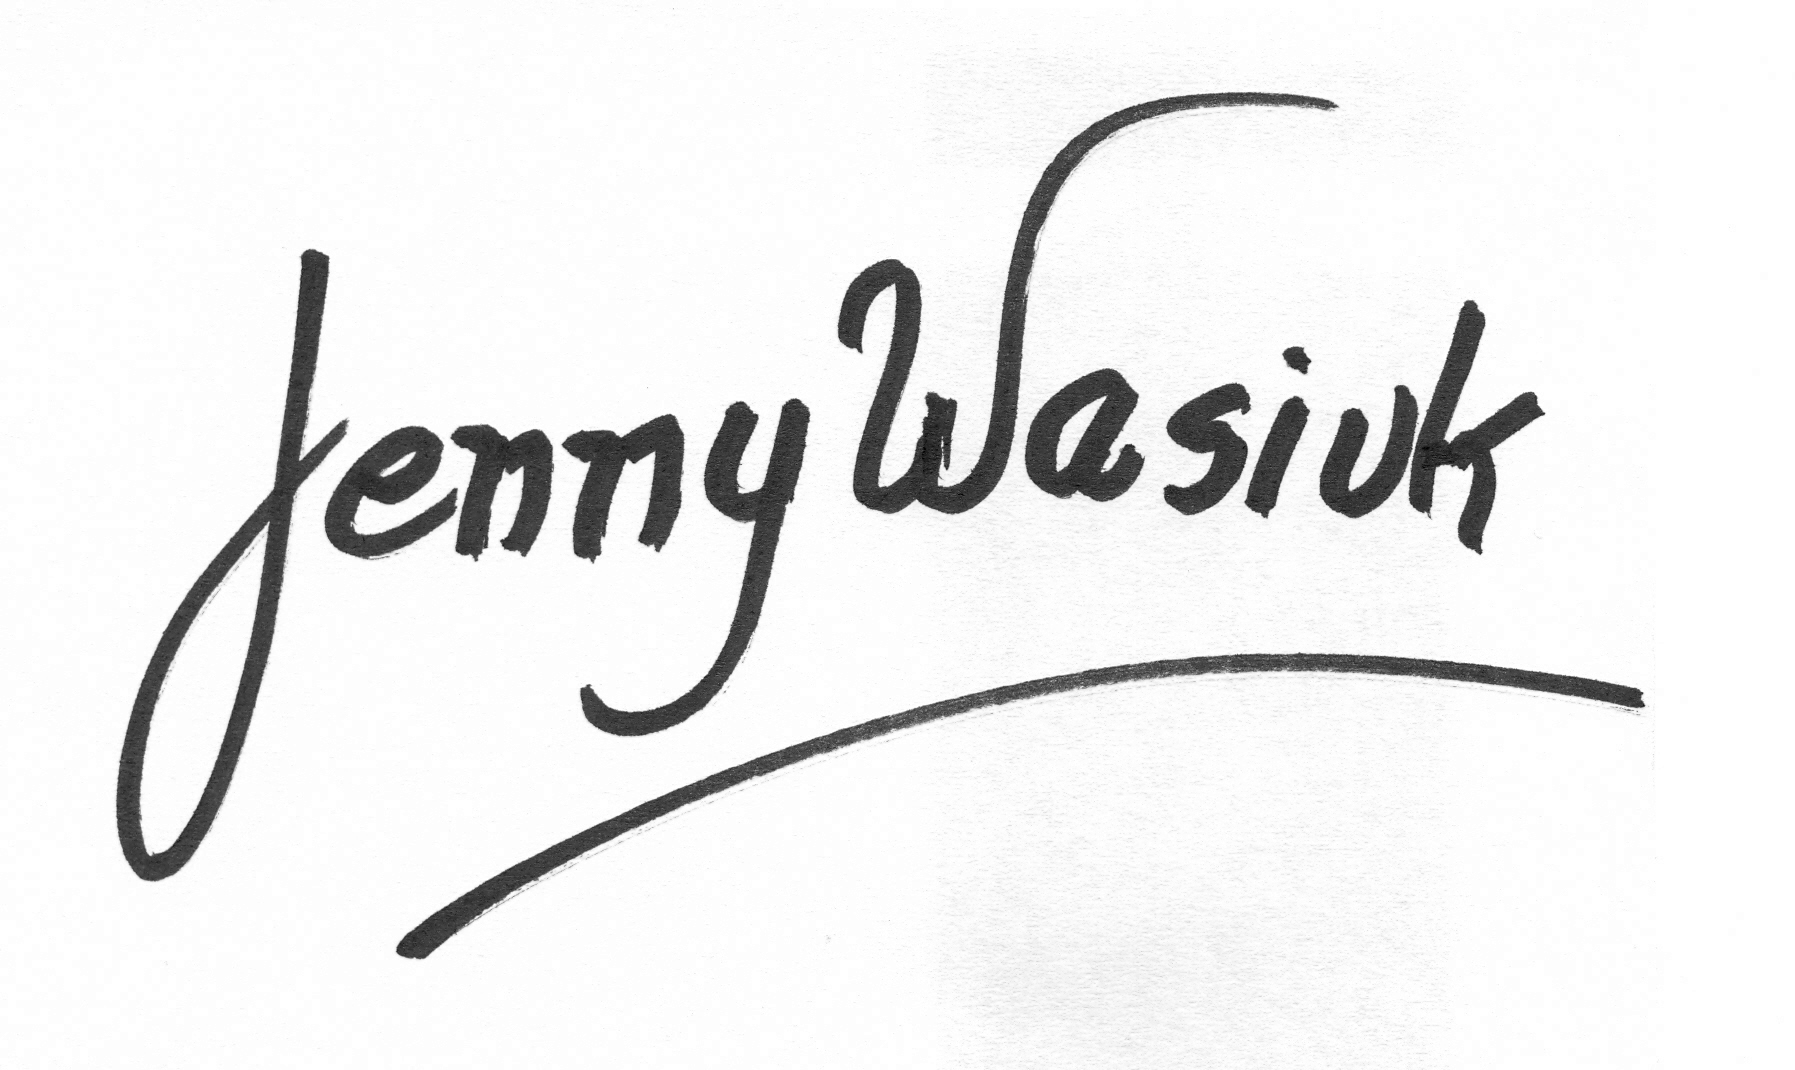 Jenny Wasiuk